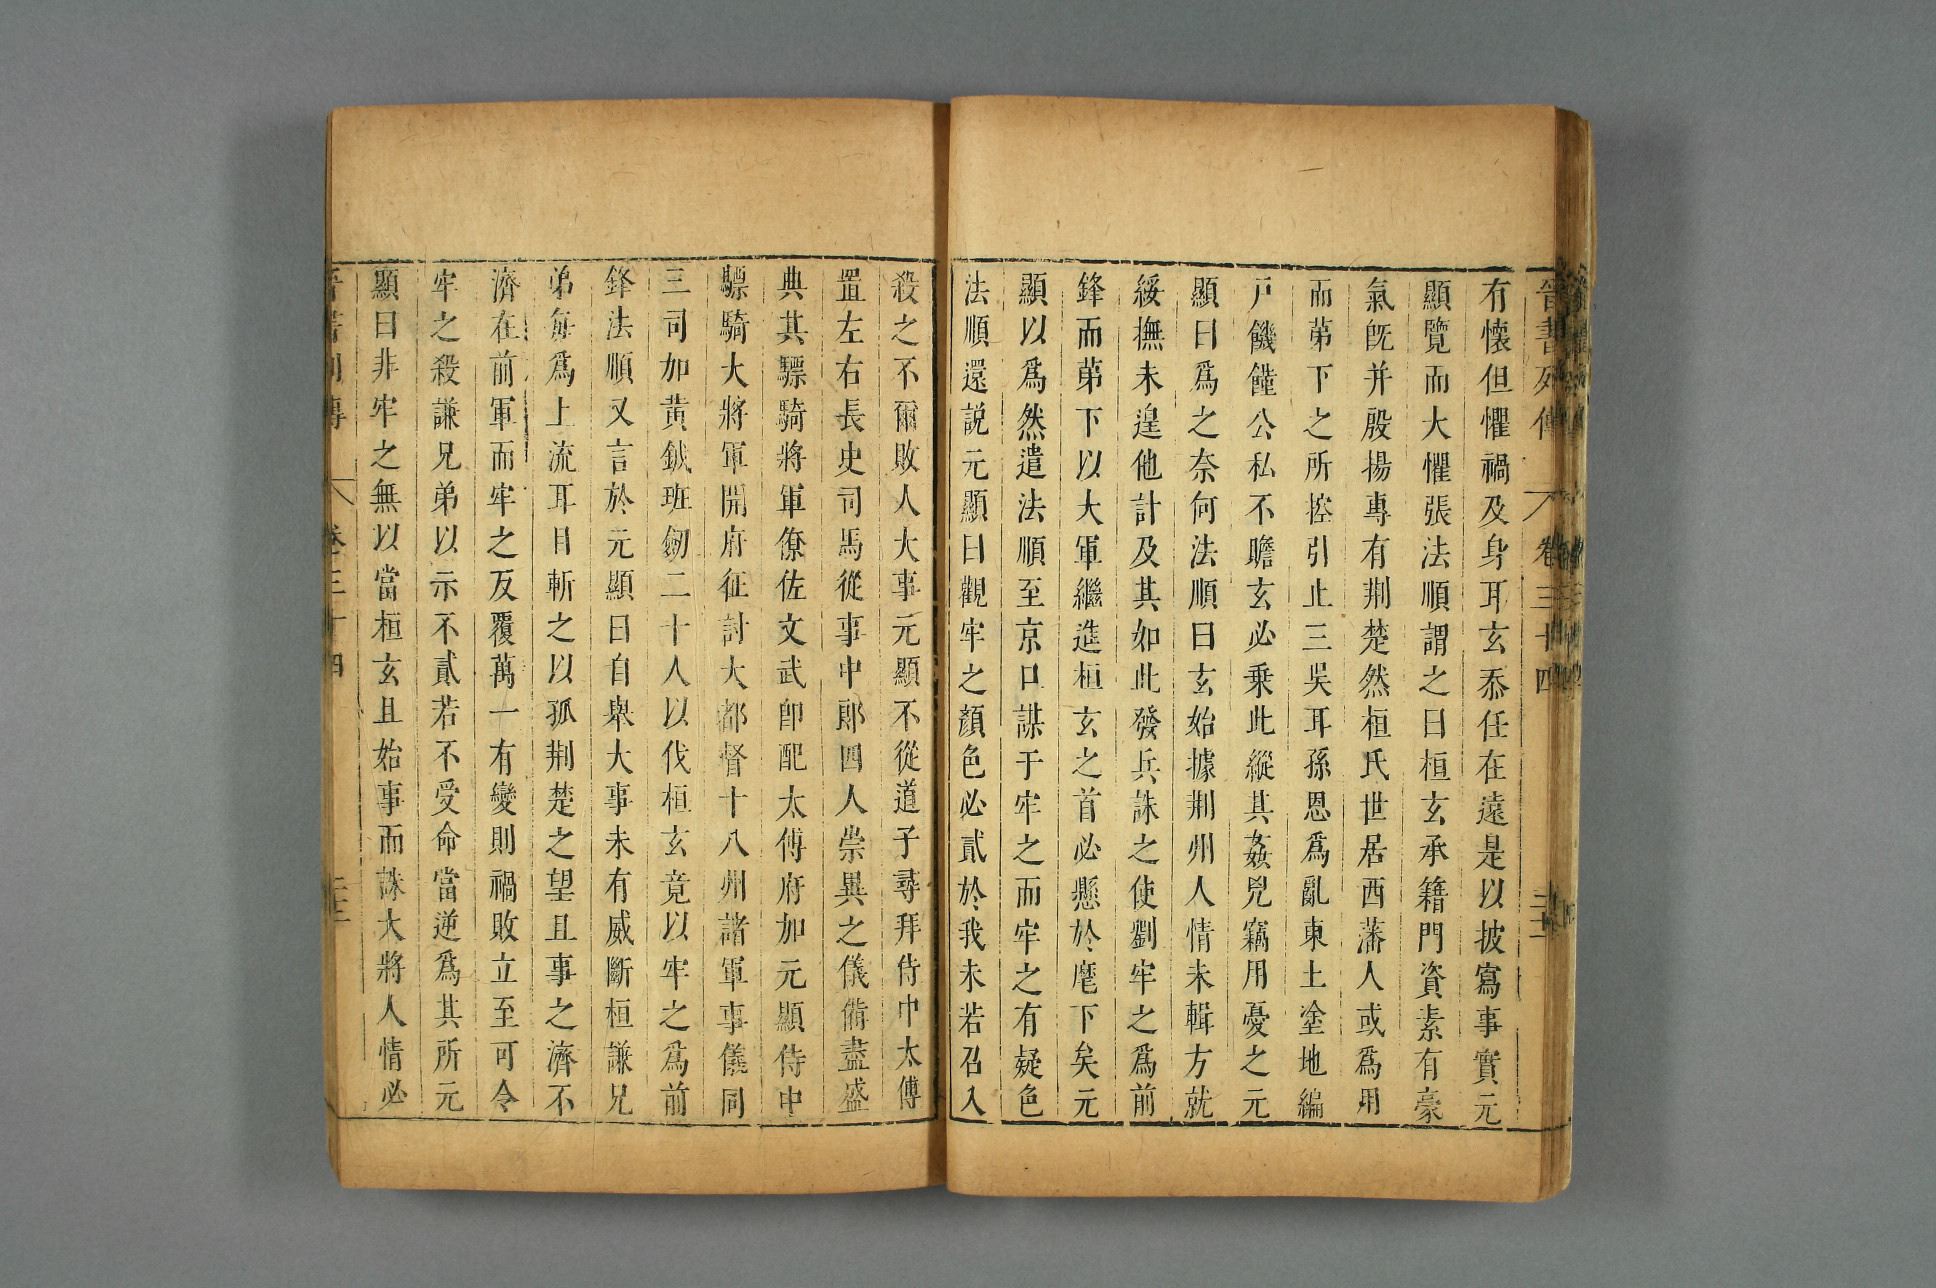 晉書列傳 卷三十四
有懷但懼禍及身耳玄忝任在遠是以披寫事實元
顯覽而大懼張法順謂之曰桓玄承籍門資素有豪
氣旣并殷揚專有荆楚然桓氏世居西藩人或爲用
而苐下之所控引止三吳耳孫恩爲亂東土塗地編
戸饑饉公私不贍玄必乗此縱其姦兇竊用憂之元
顯曰爲之奈何法順曰玄始據荆州人情未輯方就
綏撫未遑他計及其如此發兵誅之使劉牢之爲前
鋒而苐下以大軍繼進桓玄之首必懸於麾下矣元
顯以爲然遣法順至京口謀于牢之而牢之有疑色
法順還説元顯曰觀牢之顏色必貳於我未若召入
殺之不爾敗人大事元顯不從道子尋拜侍中太傅
置左右長史司馬從事中郞四人崇異之儀備盡盛
典其驃騎將軍僚佐文武卽配太傅府加元顯侍中
驃騎大將軍開府征討大都督十八州諸軍事儀同
三司加黄鉞班劒二十人以伐桓玄竟以牢之爲前
鋒法順又言於元顯曰自舉大事未有威斷桓謙兄
弟每爲上流耳目斬之以孤荆楚之望且事之濟不
濟在前軍而牢之反覆萬一有變則禍敗立至可令
牢之殺謙兄弟以示不貳若不受命當逆爲其所元
顯曰非牢之無以當桓玄且始事而誅大將人情必
晉書列傳 卷三十四